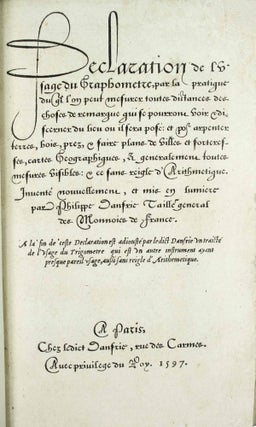 Declaration de l'V
sage du Graphometre, par la pratique
du ql. l'on peut mesurer toutes distances des
choses de remarque qui se pourront voir & di
scerner du lieu ou il sera posé: et pour arpenter
terres, bois, prez, & faire plans de villes et forteres-
ses, cartes Geographiques, & generalement toutes
mesures visibles: & ce sans reigle d'Arithmetique.
Inventé nouvellement, et mis en lumiere
par Philippe Danfrie Tailleur general
des Monnoies de France.
A la fin de ceste Declaration est adiousté par ledict Danfrie vn traicté
de l'Vsage du Trigometre qui est vn autre instrument ayant
presque pareil vsage, aussi sans reigle d'Arithmetique.
A Paris.
Chez ledict Danfrie, rue des Carmes.
Auec priuilege du Roy. 1597.